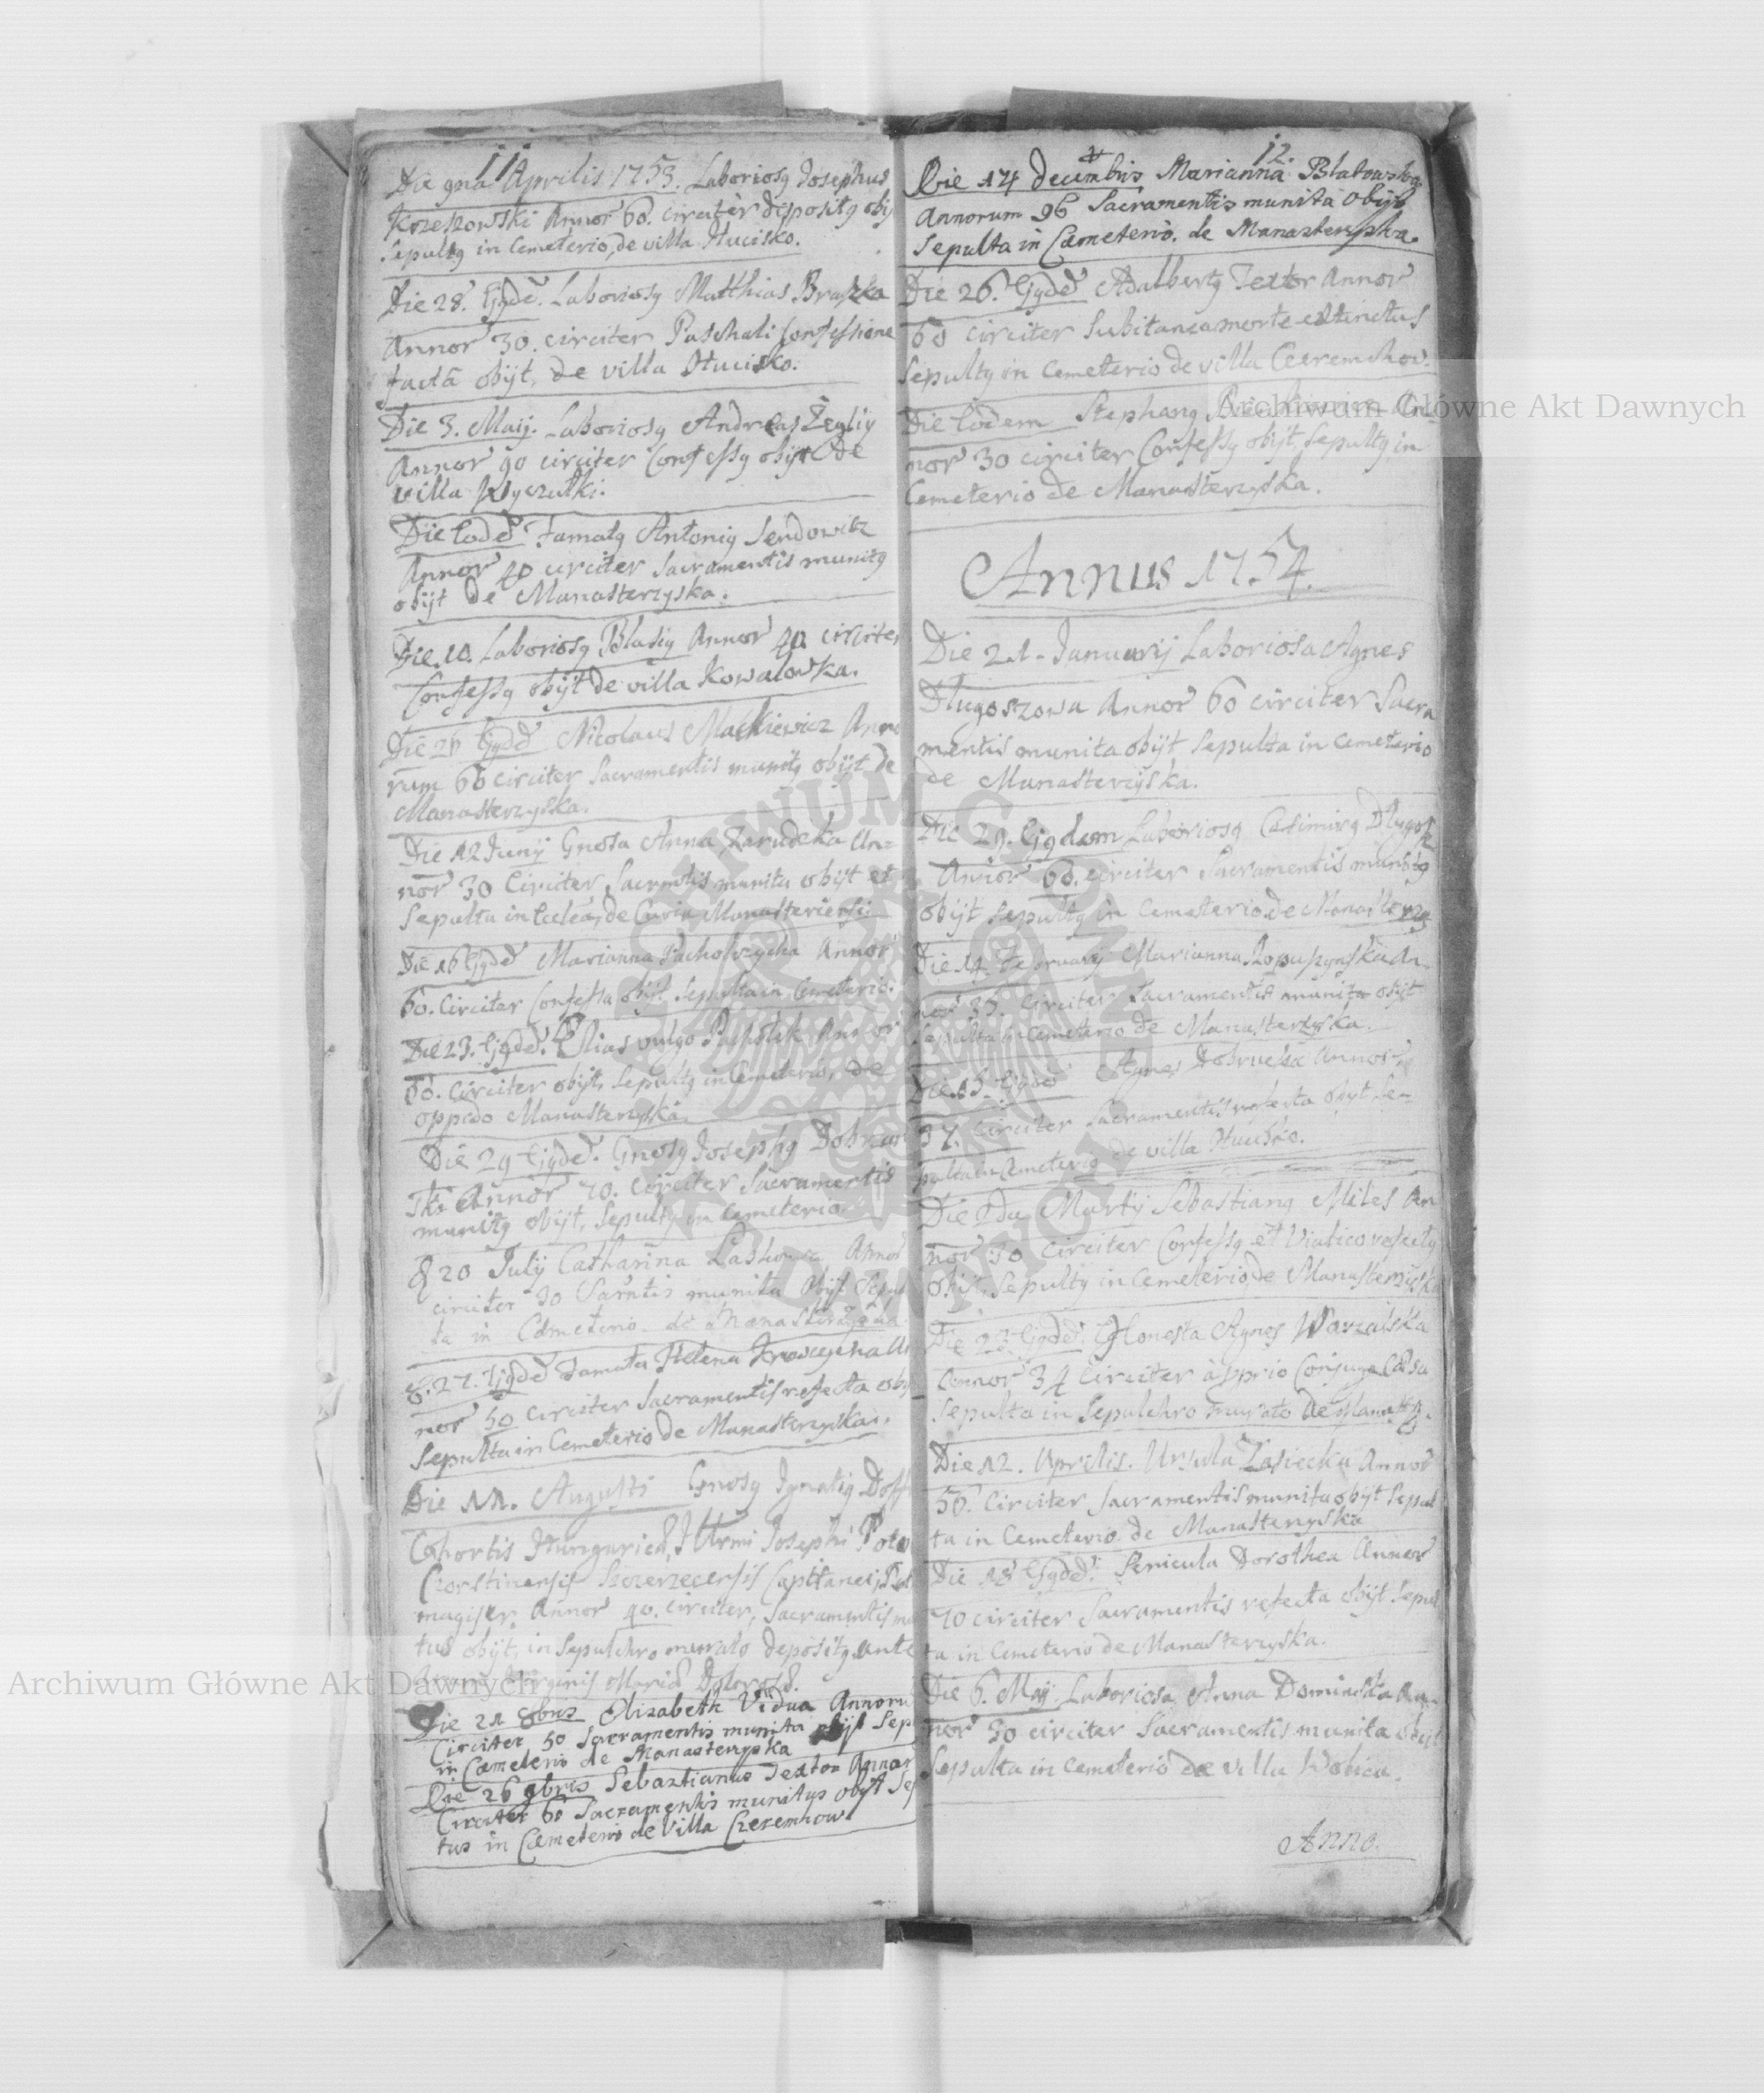 11
Die 9na Aprilis 1753. Laboriosq Josephus
Annor 60. circiter dispositq obij
Sepultq in Cemeterio, de villa Hucisko.
Die 28. Ejqdē. Laboriosq Matthias Braszka
Annor 30. circiter Paschali Confessione
factā obijt, de villa Hucisko.
Die 3. Maij. Laboriosq Andreas
Annor 90 circiter Confessq obijt De
villa
Die Eodē Famatq Antoniq Sendowicz
Annor 40 circiter Sacramentis munitq
obijt de Manasterzyska.
Die 10. Laboriosq Blasiq Annor 40 circiter
Confessq obijt de villa Kowalowka.
Die Ejqdē Nicolaus Mackiewicz Anno
rum 66 circiter Sacramentis munitq obijt de
Manasterzyska.
Die 12 Junij Gnosa Anna Zarudzka An=
nor 30 Circiter Sacrmtis munita obijt et
Sepulta in Ecclea, de Curia Manasteriensi.
Die 16 Ejqdē Marianna Pacholczycha Annor
60. Circiter Confessa obijt. Sepulta in Cemeterio.
Die 23. Ejqdē. Elias vulgo Annor
60. circiter obijt, Sepultq in Cemeterio, de
oppido Manasterzyska.
Die 29 Ejqdē. Gnosq Josephq
Annor 70. circiter Sacramentis
munitq obijt, Sepultq in Cemeterio
D 20 Julij Catharina Annor
circiter 30 Sacrntis munita Obijt Sepul
ta in Cemeterio de Manasterzyska
D. 27. Ejqdē Famata Helena An
nor 50 circiter Sacramentis refecta obij
Sepulta in Cemeterio de Manasterzyska.
Die 11. Augusti Gnosq Ignatiq
Cohortis Hungaricæ, Illrmi Josephi Poto
Capitanei,
magister, Annor 40. circiter, Sacramentis mu
tus obijt, in Sepulchro murato depositq ante
Virginis Mariæ Dolorosæ.
Die 21 8bris Elizabeth Vidua Annoru
Circiter 50 Sacramentis munita obijt Sep
in Cæmeterio de Manasterzyska
Die 26 9bris Sebastianus Textor Annor
Circiter 60 Sacramentis munitus obijt Se
tus in Cæmeterio de Villa Czeremhow
12.
Die 14 decembris Marianna
Annorum 96 Sacramentis munita Obijt
Sepulta in Cæmeterio. de Manasterzyska.
Die 26. Ejqdē Adalbertq Textor Annor
60 circiter Subitanea morte extinctus
Sepultq in Cemeterio de villa Czeremchow.
Die Eodem Stephanq An=
nor 30 circiter Confessq obijt, Sepultq in
Cemeterio de Manasterzyska.
Annus 1754.
Die 21. Januarij Laboriosa Agnes
Dlugoszowa Annor 60 circiter Sacra
mentis munita obijt Sepulta in Cemeterio
de Manasterzyska.
Die 29. Ejqdem Laboriosq Casimirq Dlugosz
Annor 60. circiter Sacramentis munitq
obijt Sepultq in Cemeterio, de Manasterzy
Die 14 February Marianna An-
nor 36. Circiter Sacramentis munita obijt
Sepulta in Cemeterio de Manasterzyska.
Die 15. Ejqdē Agnes Dobrucka Annor
37. Circiter Sacramentis refecta obijt Se=
pulta in Cemeterio de villa Hucisko.
Die 2da Martij Sebastianq Miles An
nor 30 Circiter Confessq et Viatico refectq
obijt, Sepultq in Cemeterio, de Manasterzyska
Die 23. Ejqdē. Honesta Agnes Warzalska
Annor 34 Circiter à pprio Conjuge Cæsa
Sepulta in Sepulchro murato de Manastz.
Die 12. Aprilis. Ursula Zasiecka Annor
56. Circiter Sacramentis munita obijt Sepul
ta in Cemeterio de Manasterzyska
Die 18 Ejqdē. Dorothea Annor
70 circiter Sacramentis refecta obijt Sepul
ta in Cemeterio de Manasterzyska.
Die 6. Maij. Laboriosa Anna Dominska An=
nor 50 circiter Sacramentis munita obijt
Sepulta in Cemeterio de villa
Anno.
Archiwum Główne Akt Dawnych
Archiwum Główne Akt Dawnych
ARCHIWUM GŁÓWNE AKT DAWNYCH